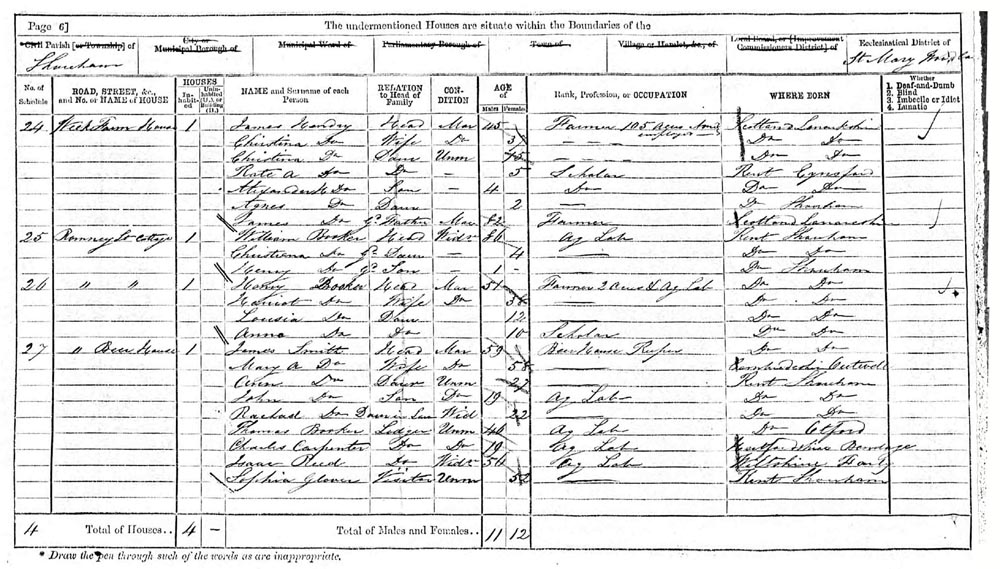 Page 6]
The undermentioned Houses are situate within the Boundaries of the
*Civil Parish [or Township] of
City or Municipal Borough of
Municipal Ward of
Parliamentary Borough of
Town of
Village or Hamlet, &c., of
Local Board, or [Improvement Commissioners District] of
Ecclesiastical District of
Shoreham
St Mary
No. of Schedule
ROAD, STREET, &c., and No. or NAME of HOUSE
HOUSES
Inhabited
Uninhabited (U.), or Building (B.)
NAME and Surname of each Person
RELATION to Head of Family
CONDITION
AGE of
Males
Females
Rank, Profession, or OCCUPATION
WHERE BORN
Whether
1. Deaf-and-Dumb
2. Blind
3. Imbecile or Idiot
4. Lunatic
24 Farm House 1 James Hendry Head Mar 45 Farmer 105 acres Scotland Lanarkshire
Christina Do Wife Do 37 — Do Do
Christina Do Daur Unm 15 — Do Do
Kate A Do Do — 5 Scholar Kent Eynsford
Alexander Do Son — 4 Do Do Do
Agnes Do Daur 2 — Do Shoreham
James Do Mar 82 Farmer Scotland
25 Romney St Cottage 1 William Booker Head Widr 86 Ag Lab Kent Shoreham
Christiana Do Gd Daur — 4 — Do Do
Henry Do Gd Son — 1 — Do Shoreham
26 " " 1 Henry Booker Head Mar 51 Farmer 2 acres & Ag Lab Do Do
Harriot Do Wife Do — Do Do
Louisa Do Daur 12 — Do Do
Anna Do Do 10 Scholar Do Do
27 " Beer House 1 James Smith Head Mar 59 Beer House Do Do
Mary A Do Wife Do 58 —
Do Daur Unm 27 — Kent Shoreham
John Do Son Do 19 Ag Lab Do Do
Rachael Do Daur in Law Wid 22 — Do Do
Thomas Booker Lodger Unm 46 Ag Lab Do Otford
Charles Carpenter Do Do 19 Ag Lab
Isaac Reed Do Widr 56 Ag Lab Wiltshire
Sophia Glover Visitor Unm 52 — Kent Shoreham
4 Total of Houses.. 4 — Total of Males and Females.. 11 12
* Draw the pen through such of the words as are inappropriate.